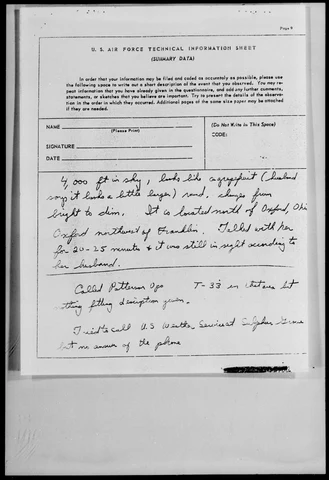 Page 9
U. S. AIR FORCE TECHNICAL INFORMATION SHEET
(SUMMARY DATA)
In order that your information may be filed and coded as accurately as possible, please use
the following space to write out a short description of the event that you observed. You may re-
peat information that you have already given in the questionnaire, and add any further comments,
statements, or sketches that you believe are important. Try to present the details of the observa-
tion in the order in which they occurred. Additional pages of the same size paper may be attached
if they are needed.
NAME
(Please Print)
SIGNATURE
DATE
(Do Not Write in This Space)
CODE:
4,000 ft in sky, looks like a grapefruit (husband
says it looks a little larger) round, changes from
bright to dim. It is located north of Oxford, Ohio
Oxford northwest of Franklin. Talked with her
for 20-25 minutes & it was still in sight according to
her husband.
Called Patterson Ops T-33 in the area but
nothing fitting description given.
Tried to call U.S Weather Service at Sulphur Grove
but no answer of the phone